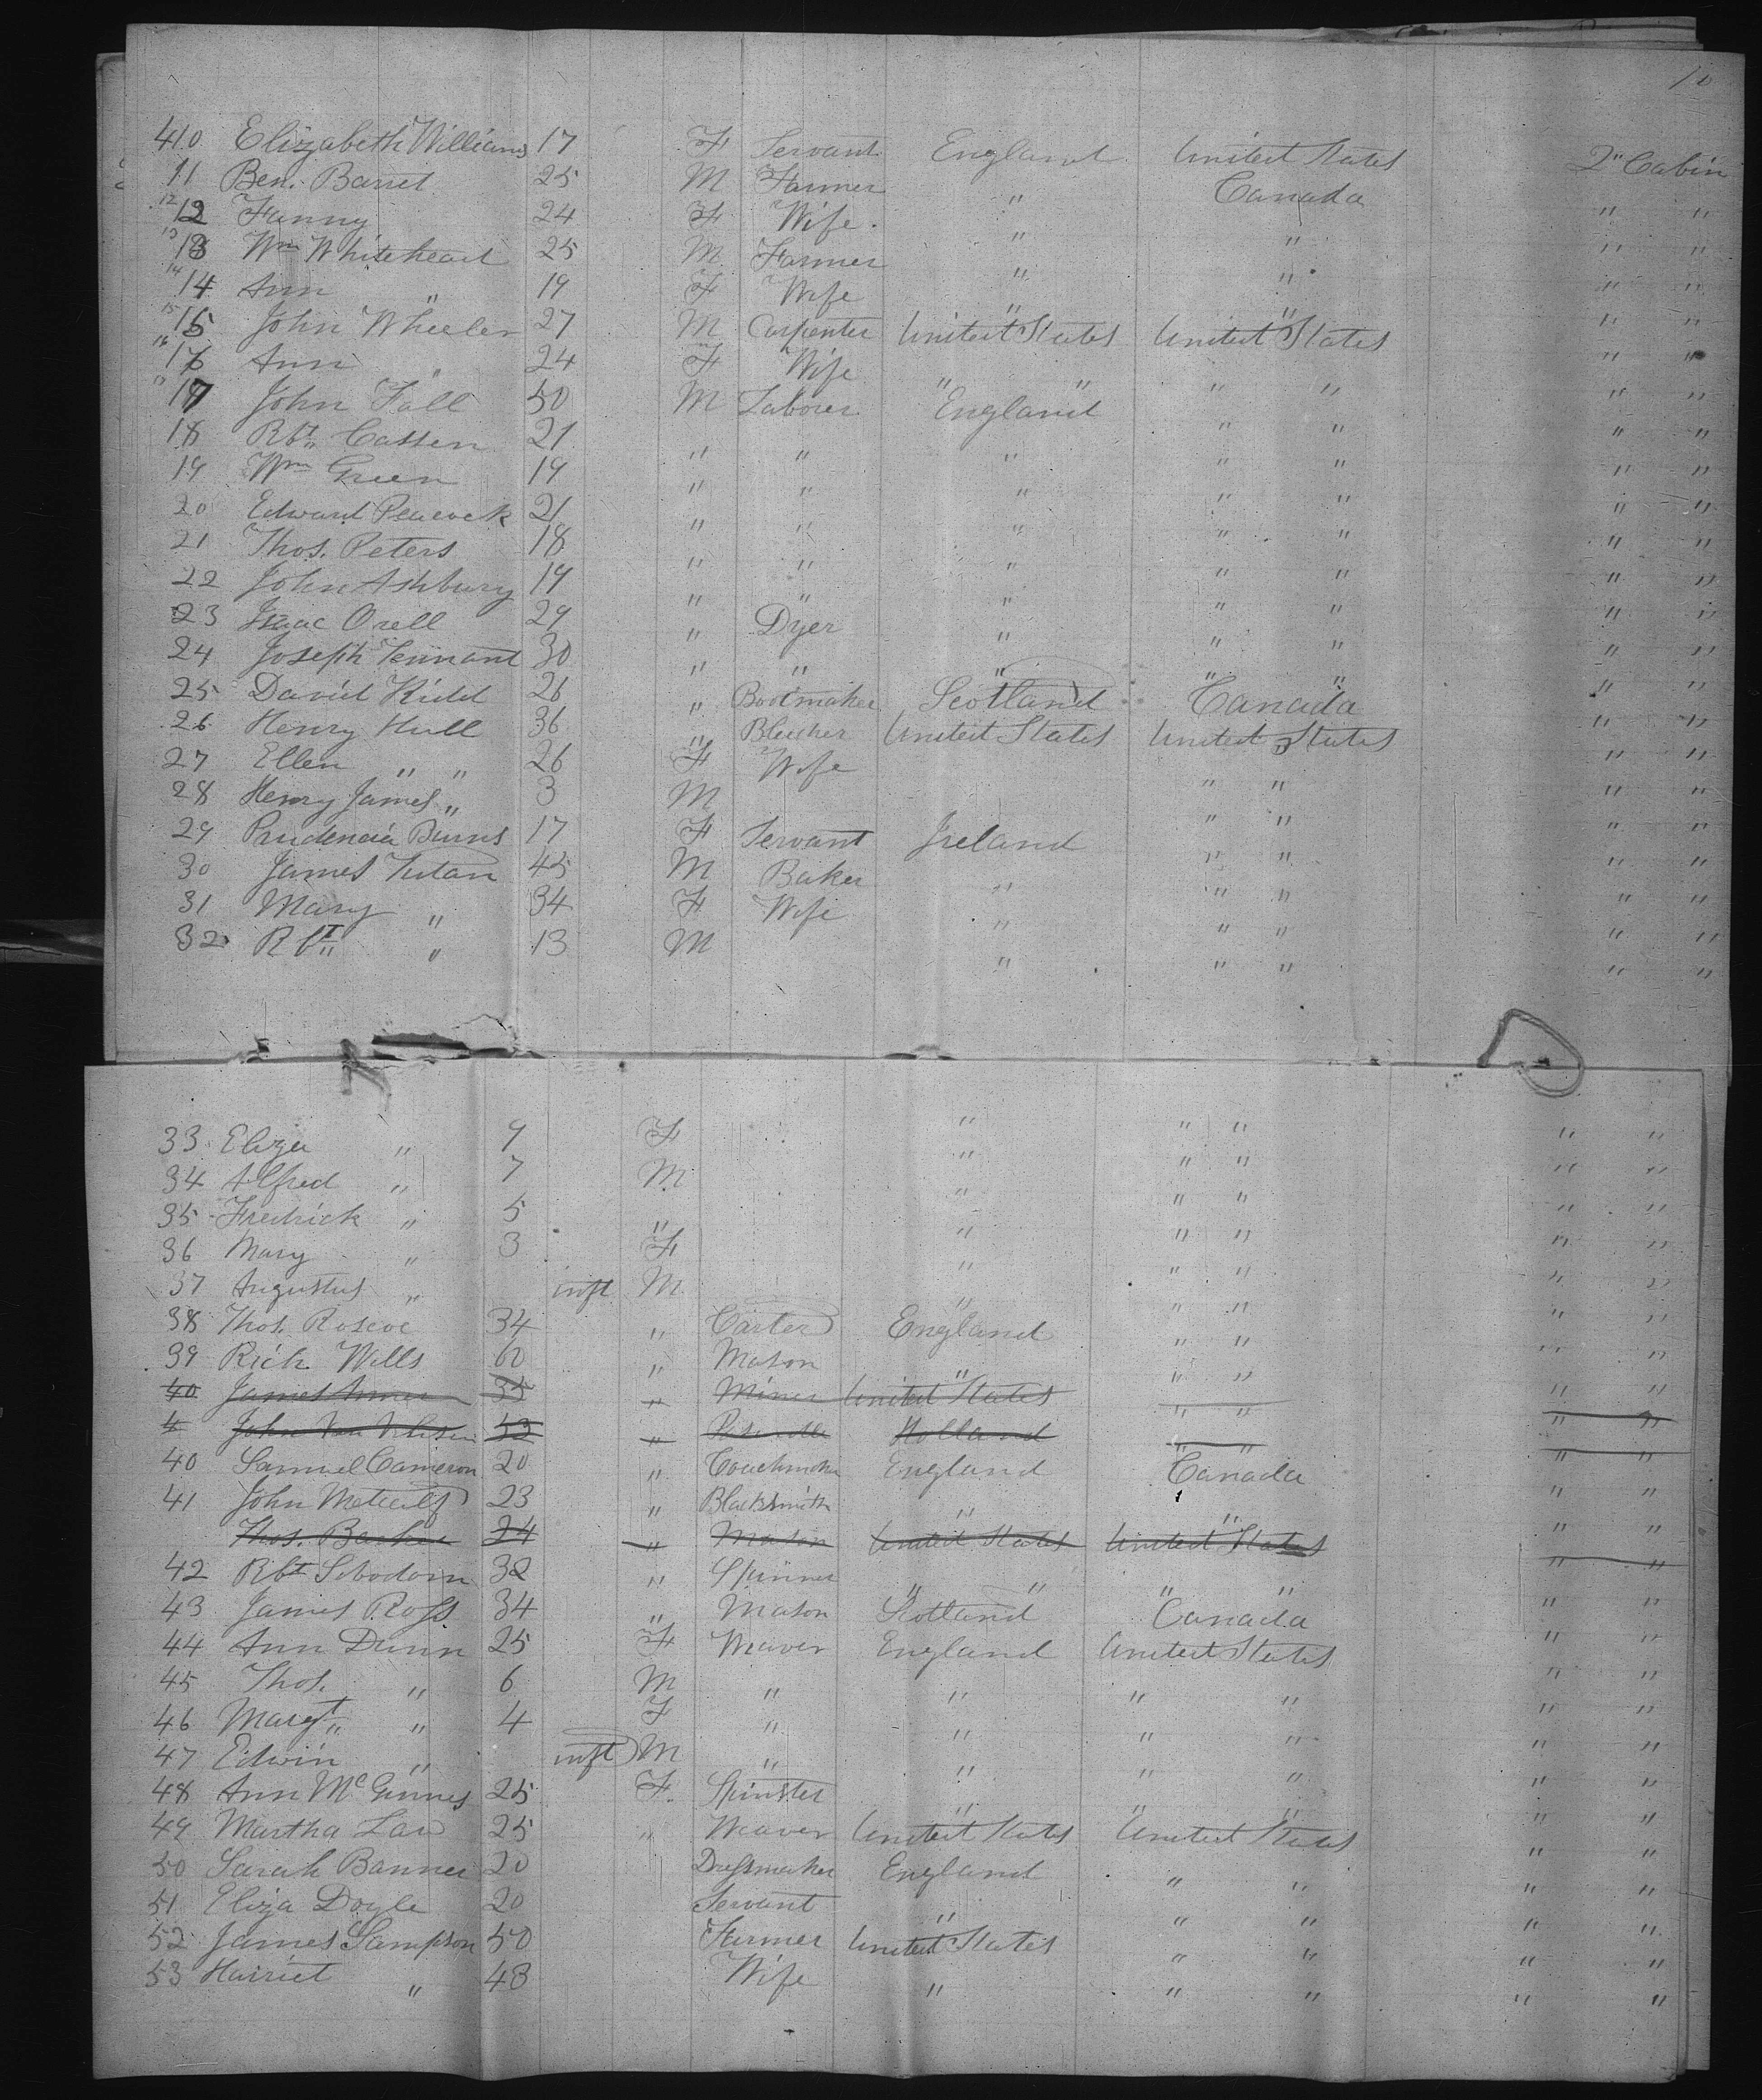 10
410 Elizabeth Williams 17 F Servant England United States 2" Cabin
11 Ben. Barret 25 M Farmer " Canada " "
12 12 Fanny 24 F Wife. " " " "
13 13 Wm Whitehead 25 M Farmer " " " "
14 14 Ann " 19 F Wife " " " "
15 15 John Wheeler 27 M Carpenter United States United States " "
16 16 Ann " 24 F Wife " " " " " "
17 17 John Fall 50 M Laborer England " " " "
18 Rbt Cassen 21 " " " " " " "
19 Wm Green 19 " " " " " " "
20 Edward Peacock 21 " " " " " " "
21 Thos. Peters 18 " " " " " " "
22 John Ashbury 19 " " " " " " "
23 Isaac Orell 29 " Dyer " " " " "
24 Joseph Tennant 30 " " " " " " "
25 David Kidd 26 " Bootmaker Scotland Canada " "
26 Henry Hull 36 " Bleecher United States United States " "
27 Ellen " " 26 F Wife " " " "
28 Henry James " 3 M " " " "
29 Prudencia Burns 17 F Servant Ireland " " " "
30 James Tutan 45 M Baker " " " " "
31 Mary " 34 F Wife " " " " "
32 Rbt " 13 M " " " " "
33 Eliza " 9 F " " " " "
34 Alfred " 7 M " " " " "
35 Fredrick " 5 " " " " " "
36 Mary " 3 F " " " " "
37 Augustus " inft M " " " " "
38 Thos. Roscoe 34 " Carter England " " " "
39 Rich. Wills 60 " Mason " " " " "
40 James 35 " Miner United States " " " "
4 John Van 43 " Holland " " " "
40 Samuel Cameron 20 " Coachmaker England Canada " "
41 John Metcalf 23 " Blacksmith " " " "
Thos. Barker 24 " Mason United States United States " "
42 Rbt Sobodorn 32 " Spinner " " " " " "
43 James Ross 34 " Mason Scotland Canada " "
44 Ann Dunn 25 F Weaver England United States " "
45 Thos. " 6 M " " " " " "
46 Margt " 4 F " " " " " "
47 Edwin " inft M " " " " " "
48 Ann McGinnes 25 F. Spinster " " " " "
49 Martha Law 25 " Weaver United States United States " "
50 Sarah Banner 20 Dressmaker England " " " "
51 Eliza Doyle 20 Servant " " " " "
52 James Sampson 50 Farmer United States " " " "
53 Harriet " 48 Wife " " " " "